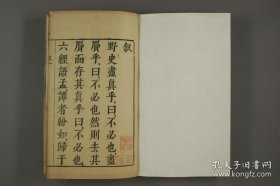 叙
野史盡真乎曰不必也盡
贋乎曰不必也然則去其
贋而存其真乎曰不必也
六經語孟譚者紛如歸于
孔夫子旧书网